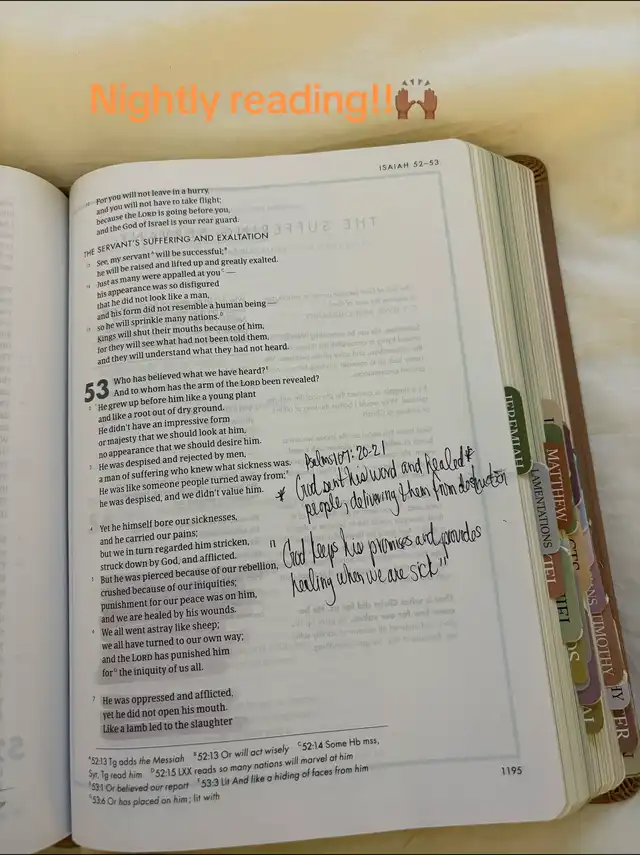 Nightly reading!!🙌🏾
ISAIAH 52–53
12 For you will not leave in a hurry,
and you will not have to take flight;
because the LORD is going before you,
and the God of Israel is your rear guard.
THE SERVANT'S SUFFERING AND EXALTATION
13 See, my servant A will be successful; B
he will be raised and lifted up and greatly exalted.
14 Just as many were appalled at you C —
his appearance was so disfigured
that he did not look like a man,
and his form did not resemble a human being —
15 so he will sprinkle many nations. D
Kings will shut their mouths because of him,
for they will see what had not been told them,
and they will understand what they had not heard.
53 Who has believed what we have heard? E
And to whom has the arm of the LORD been revealed?
2 He grew up before him like a young plant
and like a root out of dry ground.
He didn't have an impressive form
or majesty that we should look at him,
no appearance that we should desire him.
3 He was despised and rejected by men,
a man of suffering who knew what sickness was.
He was like someone people turned away from; F
he was despised, and we didn't value him.
Psalms 107:20-21
* God sent his word and healed *
people, delivering them from destruction
4 Yet he himself bore our sicknesses,
and he carried our pains;
but we in turn regarded him stricken,
struck down by God, and afflicted.
5 But he was pierced because of our rebellion,
crushed because of our iniquities;
punishment for our peace was on him,
and we are healed by his wounds.
6 We all went astray like sheep;
we all have turned to our own way;
and the LORD has punished him
for G the iniquity of us all.
"God keeps his promises and provides
healing when we are sick"
7 He was oppressed and afflicted,
yet he did not open his mouth.
Like a lamb led to the slaughter
A 52:13 Tg adds the Messiah B 52:13 Or will act wisely C 52:14 Some Hb mss,
Syr, Tg read him D 52:15 LXX reads so many nations will marvel at him
E 53:1 Or believed our report F 53:3 Lit And like a hiding of faces from him
G 53:6 Or has placed on him; lit with
1195
JEREMIAH
LAMENTATIONS
MATTHEW
TIMOTHY